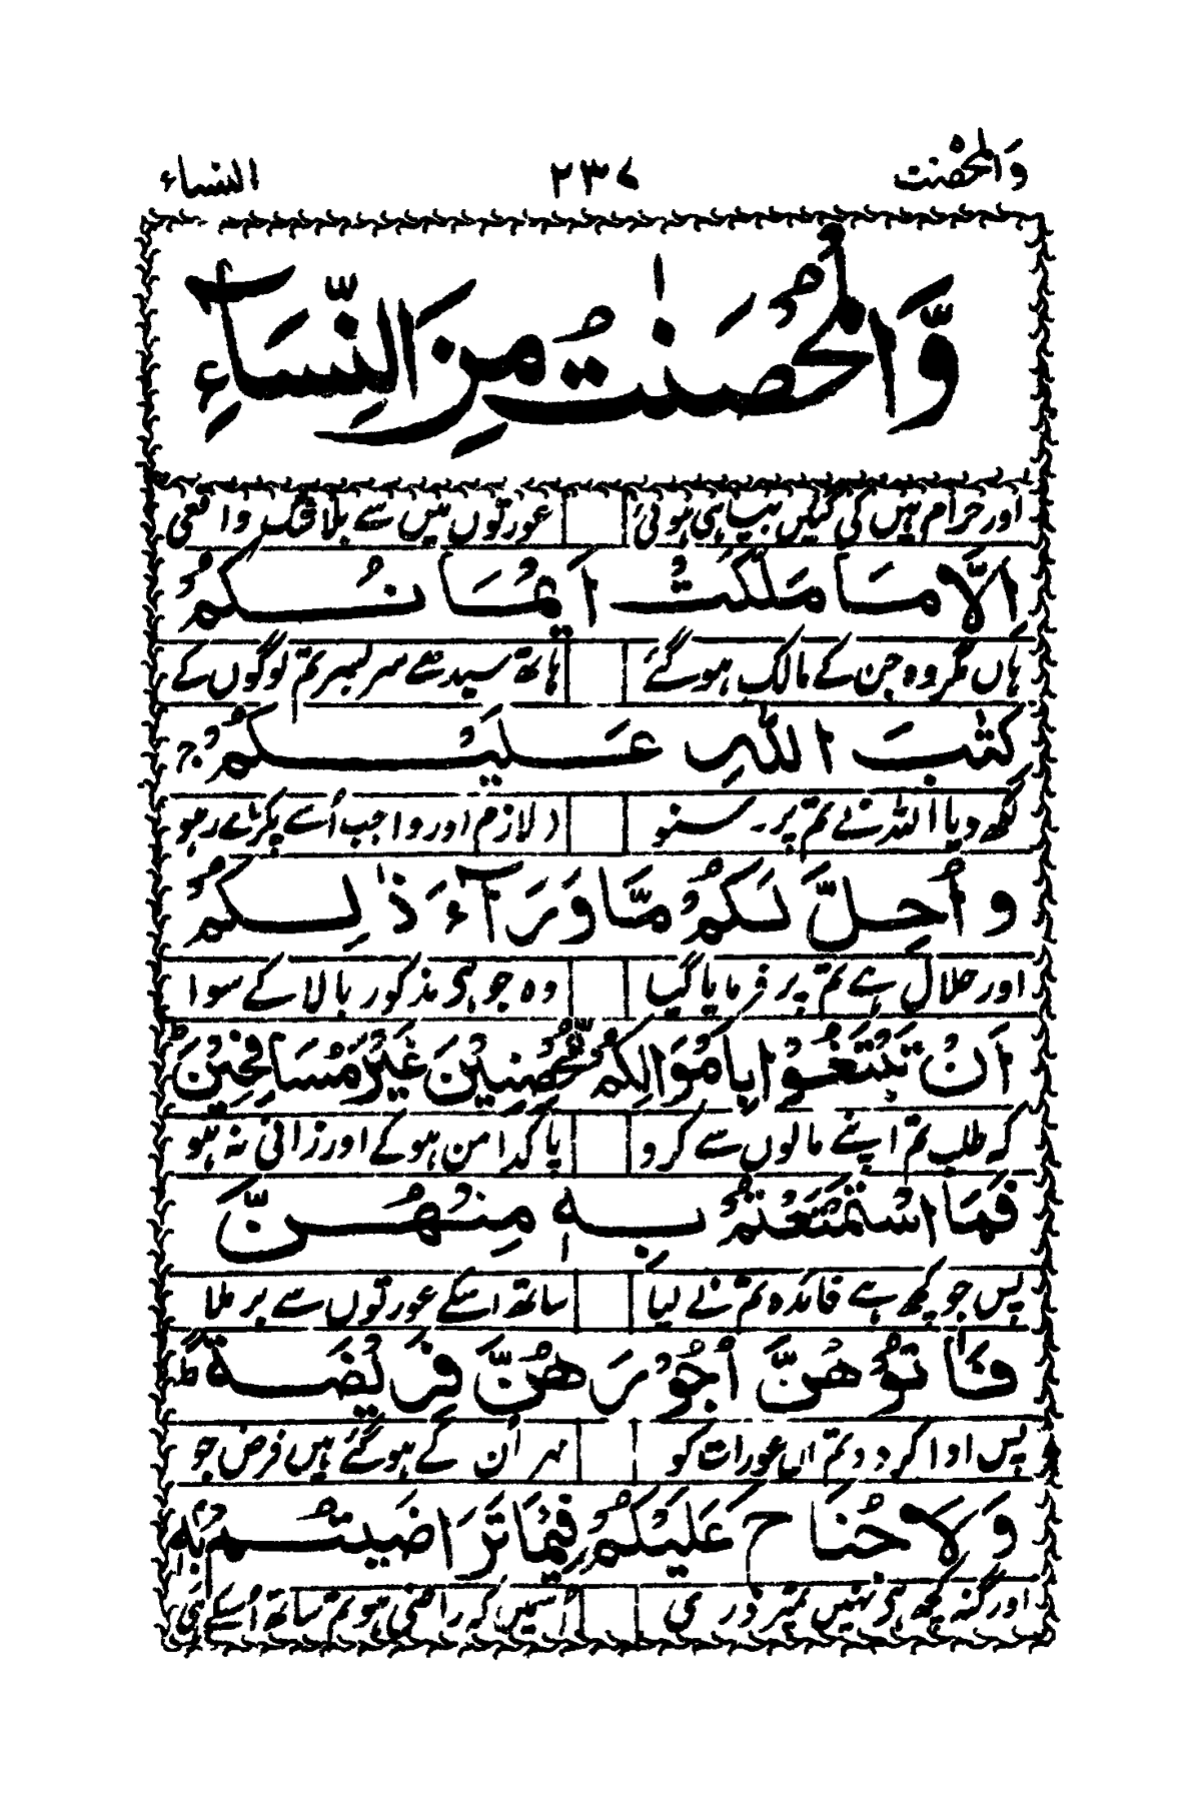 وَالْمُحْصَنٰت ۲۳۷ النساء
وَّالْمُحْصَنٰتُ مِنَ النِّسَآءِ
اور حرام ہیں کی گئیں بیاہی ہوئی عورتوں میں سے بلا شک واقعی
اِلَّا مَا مَلَكَتْ اَيْمَانُكُمْ
ہاں مگر وہ جن کے مالک ہو گئے ہاتھ سیدھے سر بسر تم لوگوں کے
كِتٰبَ اللّٰهِ عَلَيْكُمْ ج
لکھ دیا اللہ نے تم پر۔ سنو (لازم اور واجب اُسے پکڑے رہو
وَاُحِلَّ لَكُمْ مَّا وَرَآءَ ذٰلِكُمْ
اور حلال ہے تم پر فرمایا گیا وہ جو ہی مذکور بالا کے سوا
اَنْ تَبْتَغُوْا بِاَمْوَالِكُمْ مُّحْصِنِيْنَ غَيْرَ مُسَافِحِيْنَ ط
کہ طلب تم اپنے مالوں سے کرو پاکدامن ہو کے اور زانی نہ ہو
فَمَا اسْتَمْتَعْتُمْ بِهٖ مِنْهُنَّ
پس جو کچھ ہے فائدہ تم نے لیا ساتھ اسکے عورتوں سے بر ملا
فَاٰتُوْهُنَّ اُجُوْرَهُنَّ فَرِيْضَةً ط
پس ادا کر دو تم اں عورات کو مہر اُن کے ہو گئے ہیں فرض جو
وَلَا جُنَاحَ عَلَيْكُمْ فِيْمَا تَرَاضَيْتُمْ بِهٖ
اور گنہ کچھ ہی نہیں تمپر ذری اُسمیں کہ راضی ہو تم ساتھ اُسکے ہی